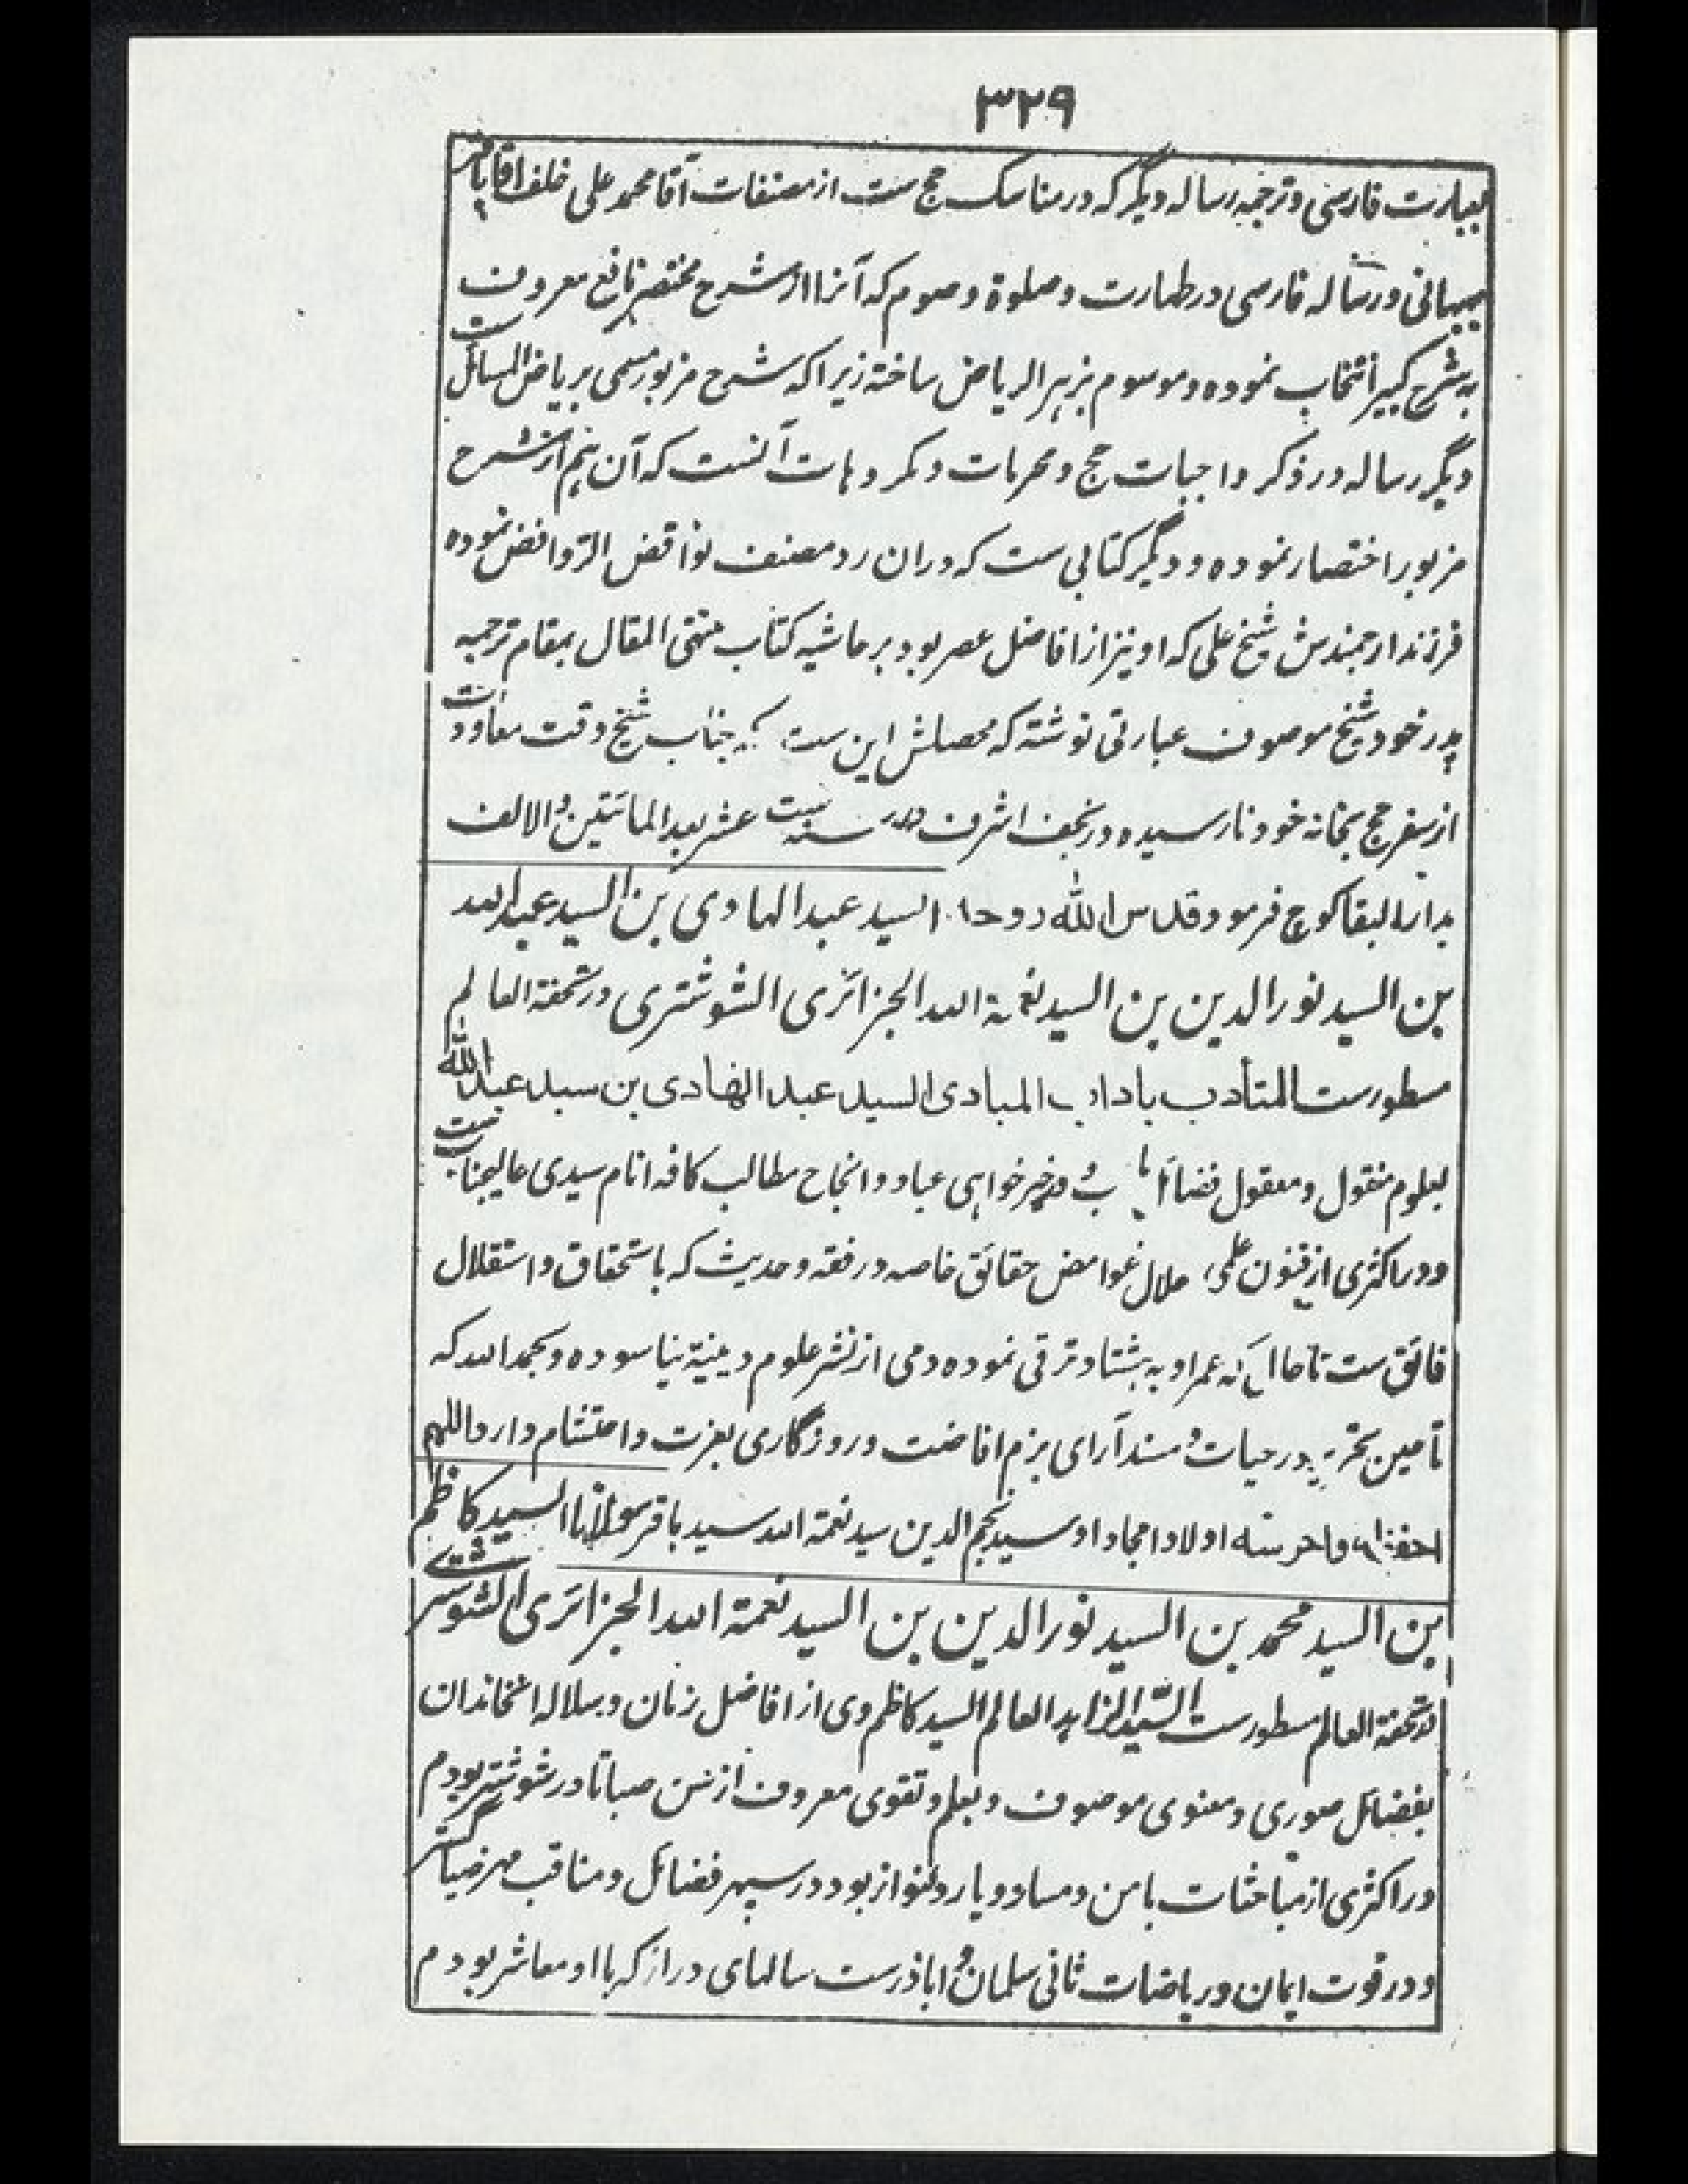 ۳۲۹
بعبارت فارسی و ترجمه رساله دیگر که در مناسک حج ست از مصنفات آقا محمد علی خلف آقا باقر
بهبهانی و رساله فارسی در طهارت و صلوة و صوم که آنرا از شرح مختصر نافع معروف
به شرح کبیر انتخاب نموده و موسوم بزهر الریاض ساخته زیرا که شرح مزبور مسمی بریاض المسائل ست
دیگر رساله در ذکر واجبات حج و محرمات و مکروهات آنست که آن هم از شرح
مزبور اختصار نموده و دیگر کتابی ست که دران رد مصنف نواقض الروافض نموده
فرزند ارجمندش شیخ علی که او نیز از افاضل عصر بود بر حاشیه کتاب منتهی المقال بمقام ترجمه
پدر خود شیخ موصوف عبارتی نوشته که محصلش این ست که جناب شیخ وقت معاودت
از سفر حج بخانه خود نارسیده در نجف اشرف در سنه ست عشر بعد المائتین و الالف
بدار البقا کوچ فرمود قدس الله روحه السید عبد الهادی بن السید عبد الله
بن السید نور الدین بن السید نعمة الله الجزائری الشوشتری در تحفة العالم
مسطورست المتأدب باداب المبادی السید عبد الهادی بن سید عبد الله
بعلوم منقول و معقول فضائل خیرخواهی عباد و انجاح مطالب کافه انام سیدی عالیجناب ست
و در اکثری از فنون علمی حلال غوامض حقائق خاصه در فقه و حدیث که باستحقاق و استقلال
فائق ست تا حال که عمر او به هشتاد ترقی نموده دمی از نشر علوم دینیة نیاسوده و بحمد الله که
تا حین تحریر در حیات و مسند آرای بزم افاضت و روزگاری بعزت و احتشام دارد اللهم
احفظه و احرسه اولاد امجاد او سید نجم الدین سید نعمة الله سید باقر مولانا السید کاظم
بن السید محمد بن السید نور الدین بن السید نعمة الله الجزائری الشوشتری
در تحفة العالم مسطورست السید الزاهد العالم السید کاظم وی از افاضل زمان و سلاله آنخاندان
بفضائل صوری و معنوی موصوف و بعلم و تقوی معروف از سن صبا تا در شوشتر بودم
در اکثری از مباحثات با من دمساز و یار دلنواز بود در سپهر فضائل و مناقب مهر ضیاگستر
و در قوت ایمان و ریاضات ثانی سلمان و اباذرست سالهای دراز که با او معاشر بودم